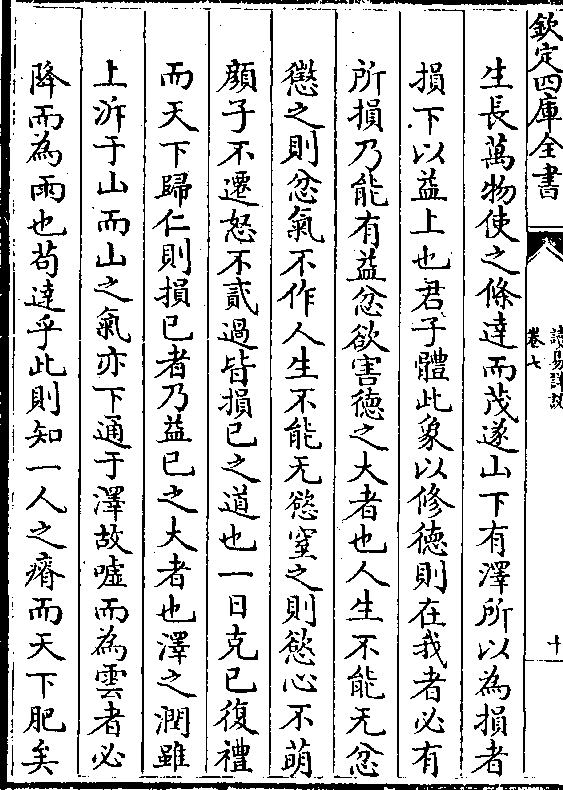 欽定四庫全書
讀易詳說
卷七
十
生長萬物使之條達而茂遂山下有澤所以為損者
損下以益上也君子體此象以修徳則在我者必有
所損乃能有益忿欲害徳之大者也人生不能无忿
懲之則忿氣不作人生不能无慾窒之則慾心不萌
顔子不遷怒不貳過皆損已之道也一日克已復禮
而天下歸仁則損已者乃益已之大者也澤之潤雖
上泝于山而山之氣亦下通于澤故嘘而為雲者必
降而為雨也苟達乎此則知一人之瘠而天下肥矣